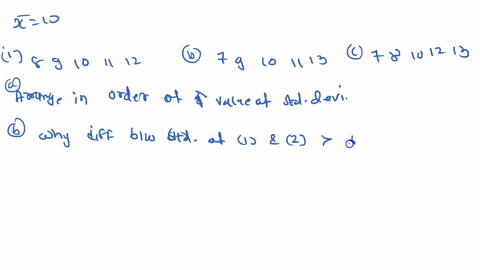 x̄ = 10
(1) 8 9 10 11 12 (b) 7 9 10 11 13 (c) 7 8 10 12 13
(a) Arrange in order of ↑ value of std. devi.
(b) why diff b/w std. of (1) & (2) >